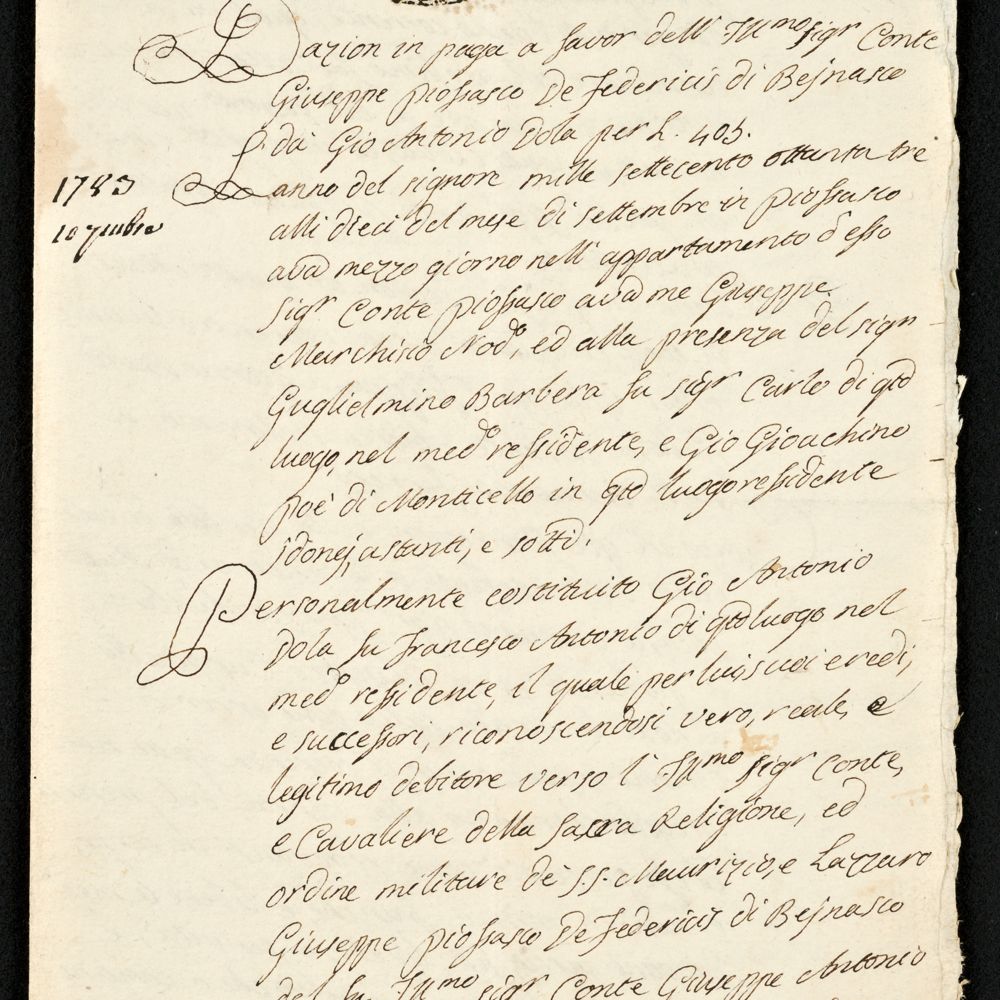 Dazion in paga a favor dell' Ill:mo Sigr Conte
Giuseppe Piossasco De Federicis di Bejnasco
da Gio Antonio Dola per L. 405.
1783
L'anno del signore mille settecento ottanta tre
10 7mbre
alli dieci del mese di settembre in Piossasco
avd mezzo giorno nell' appartamento d'esso
Sigr Conte Piossasco avd me Giuseppe
Marchisio Nodo, ed alla presenza del sign
Guglielmino Barbera fu sigr Carlo di qto
luogo, nel medo ressidente, e Gio Gioachino
Poè di Monticello in qto luogo ressidente
jdonej, astanti, e sotti.
Personalmente costituito Gio Antonio
Dola fu Francesco Antonio di qto luogo nel
medo ressidente, il quale per lui, suoi eredi,
e successori, riconoscendosi vero, reale, e
legitimo debitore verso l' Ill:mo Sigr Conte,
e Cavaliere della Sacra Religione, ed
ordine militare de S.S. Maurizio, e Lazzaro
Giuseppe Piossasco De Federicis di Bejnasco
del fu Ill:mo sigr Conte Giuseppe Antonio